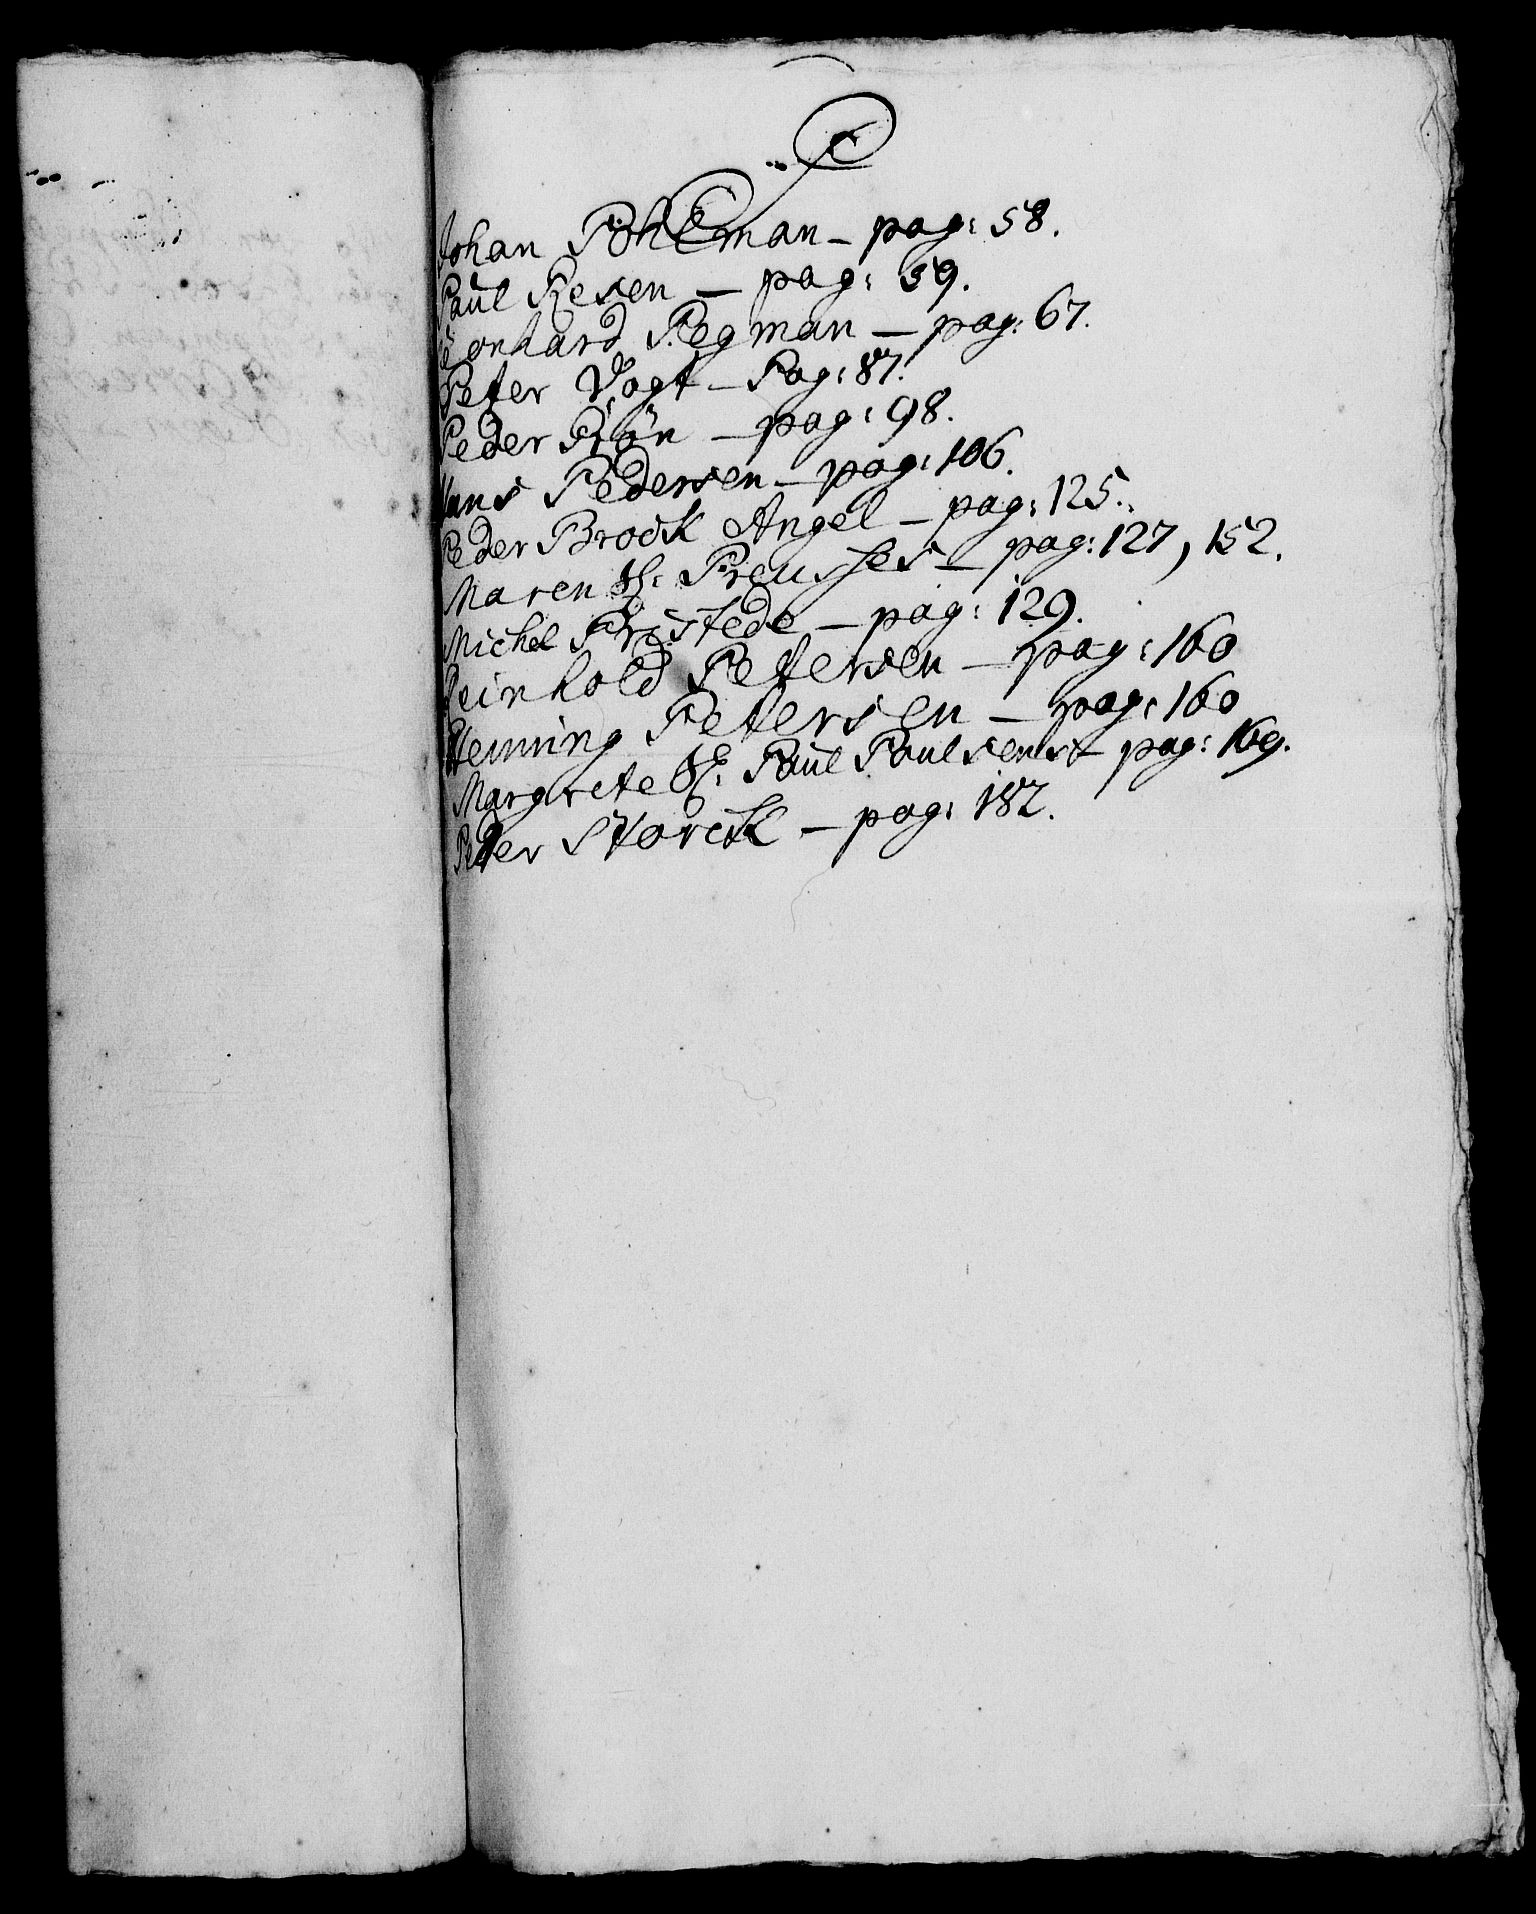 P
Johan Pöhlman – pag: 58.
Paul Resen – pag: 59.
Leonhard Pegman – pag: 67.
Peter Vogt – Pag: 87.
Peder Prön – pag: 98.
Hans Pedersen – pag: 106.
Peder Brock Angel – pag: 125.
Maren Sl: Preusses – pag: 127, 152.
Michel Pristede – pag: 129.
Reinhold Petersen – pag: 160
Henning Petersen – pag: 160
Margrete Sl: Paul Paulsens – pag: 169.
Peter Storck – pag: 182.